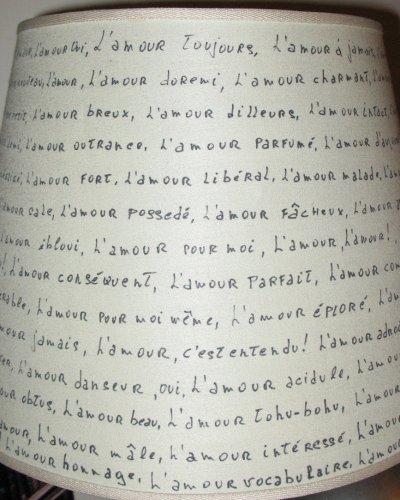 L'amour oui, L'amour toujours, L'amour à jamais,
L'amour, L'amour doremi, L'amour charmant,
L'amour breux, L'amour ailleurs, L'amour intact,
L'amour outrance, L'amour parfumé, L'amour
L'amour fort, L'amour libéral, L'amour malade,
amour sale, L'amour possedé, L'amour fâcheux, L'amour
L'amour ébloui, L'amour pour moi, L'amour, L'amour!
! L'amour conséquent, L'amour parfait, L'amour com
rable, L'amour pour moi même, L'amour éploré, L'am
mour jamais, L'amour, c'est entendu! L'amour
L'amour danseur, oui, L'amour acidule, L'amou
our obtus, L'amour beau, L'amour tohu-bohu, L'amour
amour, L'amour mâle, L'amour intéressé, L'amou
L'amour hommage, L'amour vocabulaire, L'amour